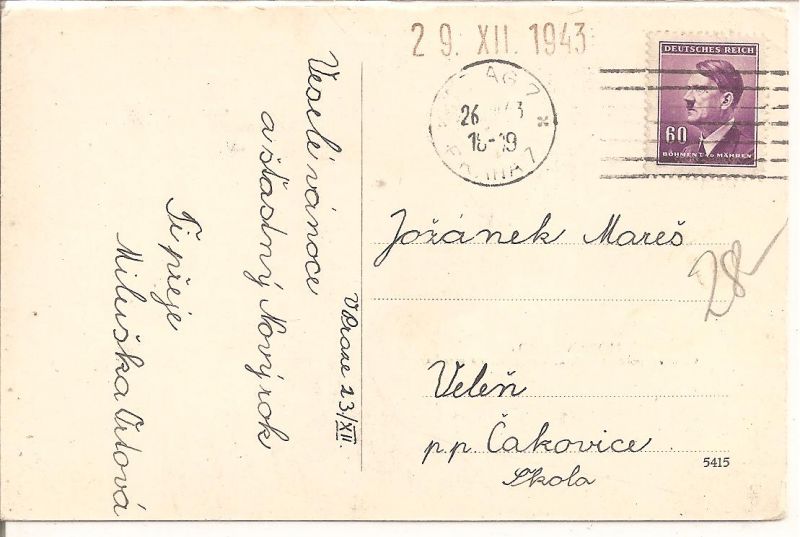 Veselé vánoce
a šťastný Nový rok
Ti přeje
Miluška Ortová
V Praze 23/XII.
29. XII. 1943
AG 7
26 43
18-19
PRAHA 7
DEUTSCHES REICH
60
BÖHMEN U. MÄHREN
Jožánek Mareš
28
Veleň
p.p. Čakovice
Škola
5415